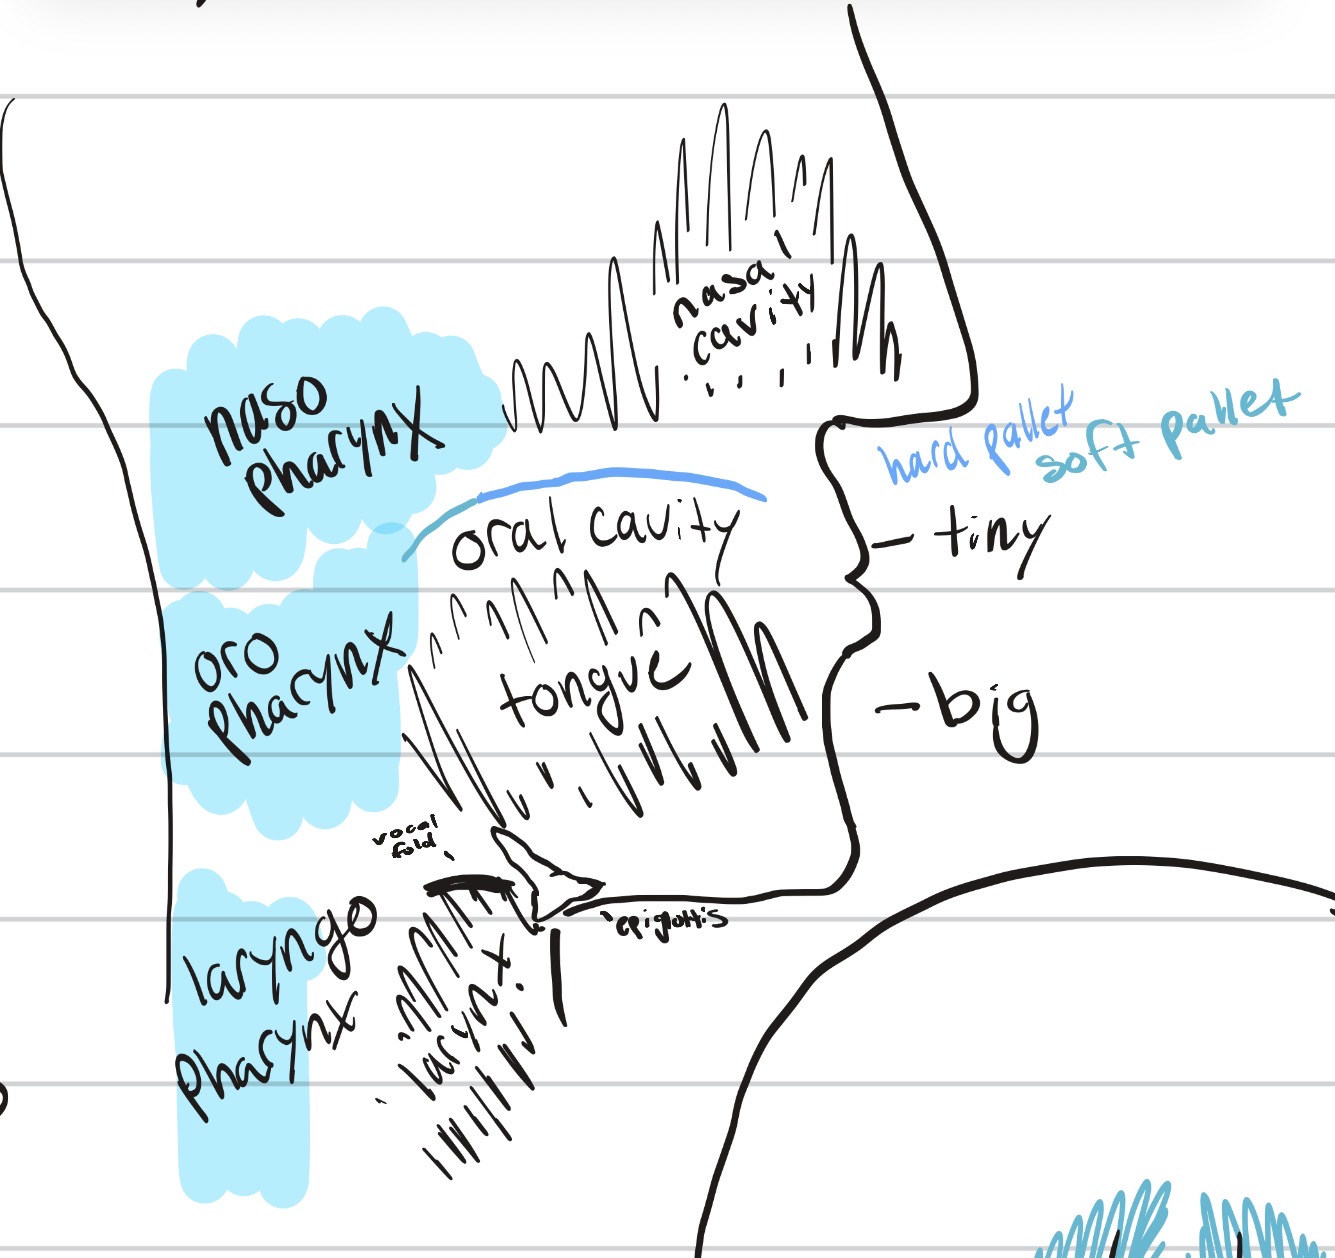 nasal
cavity
naso
pharynx
hard pallet
soft pallet
oral cavity
- tiny
oro
pharynx
tongue
- big
vocal
fold
epiglottis
laryngo
pharynx
larynx